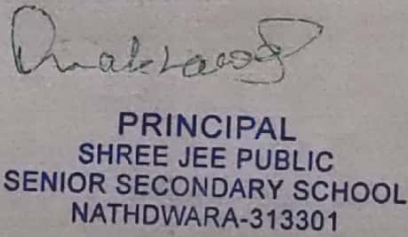 PRINCIPAL
SHREE JEE PUBLIC
SENIOR SECONDARY SCHOOL
NATHDWARA-313301